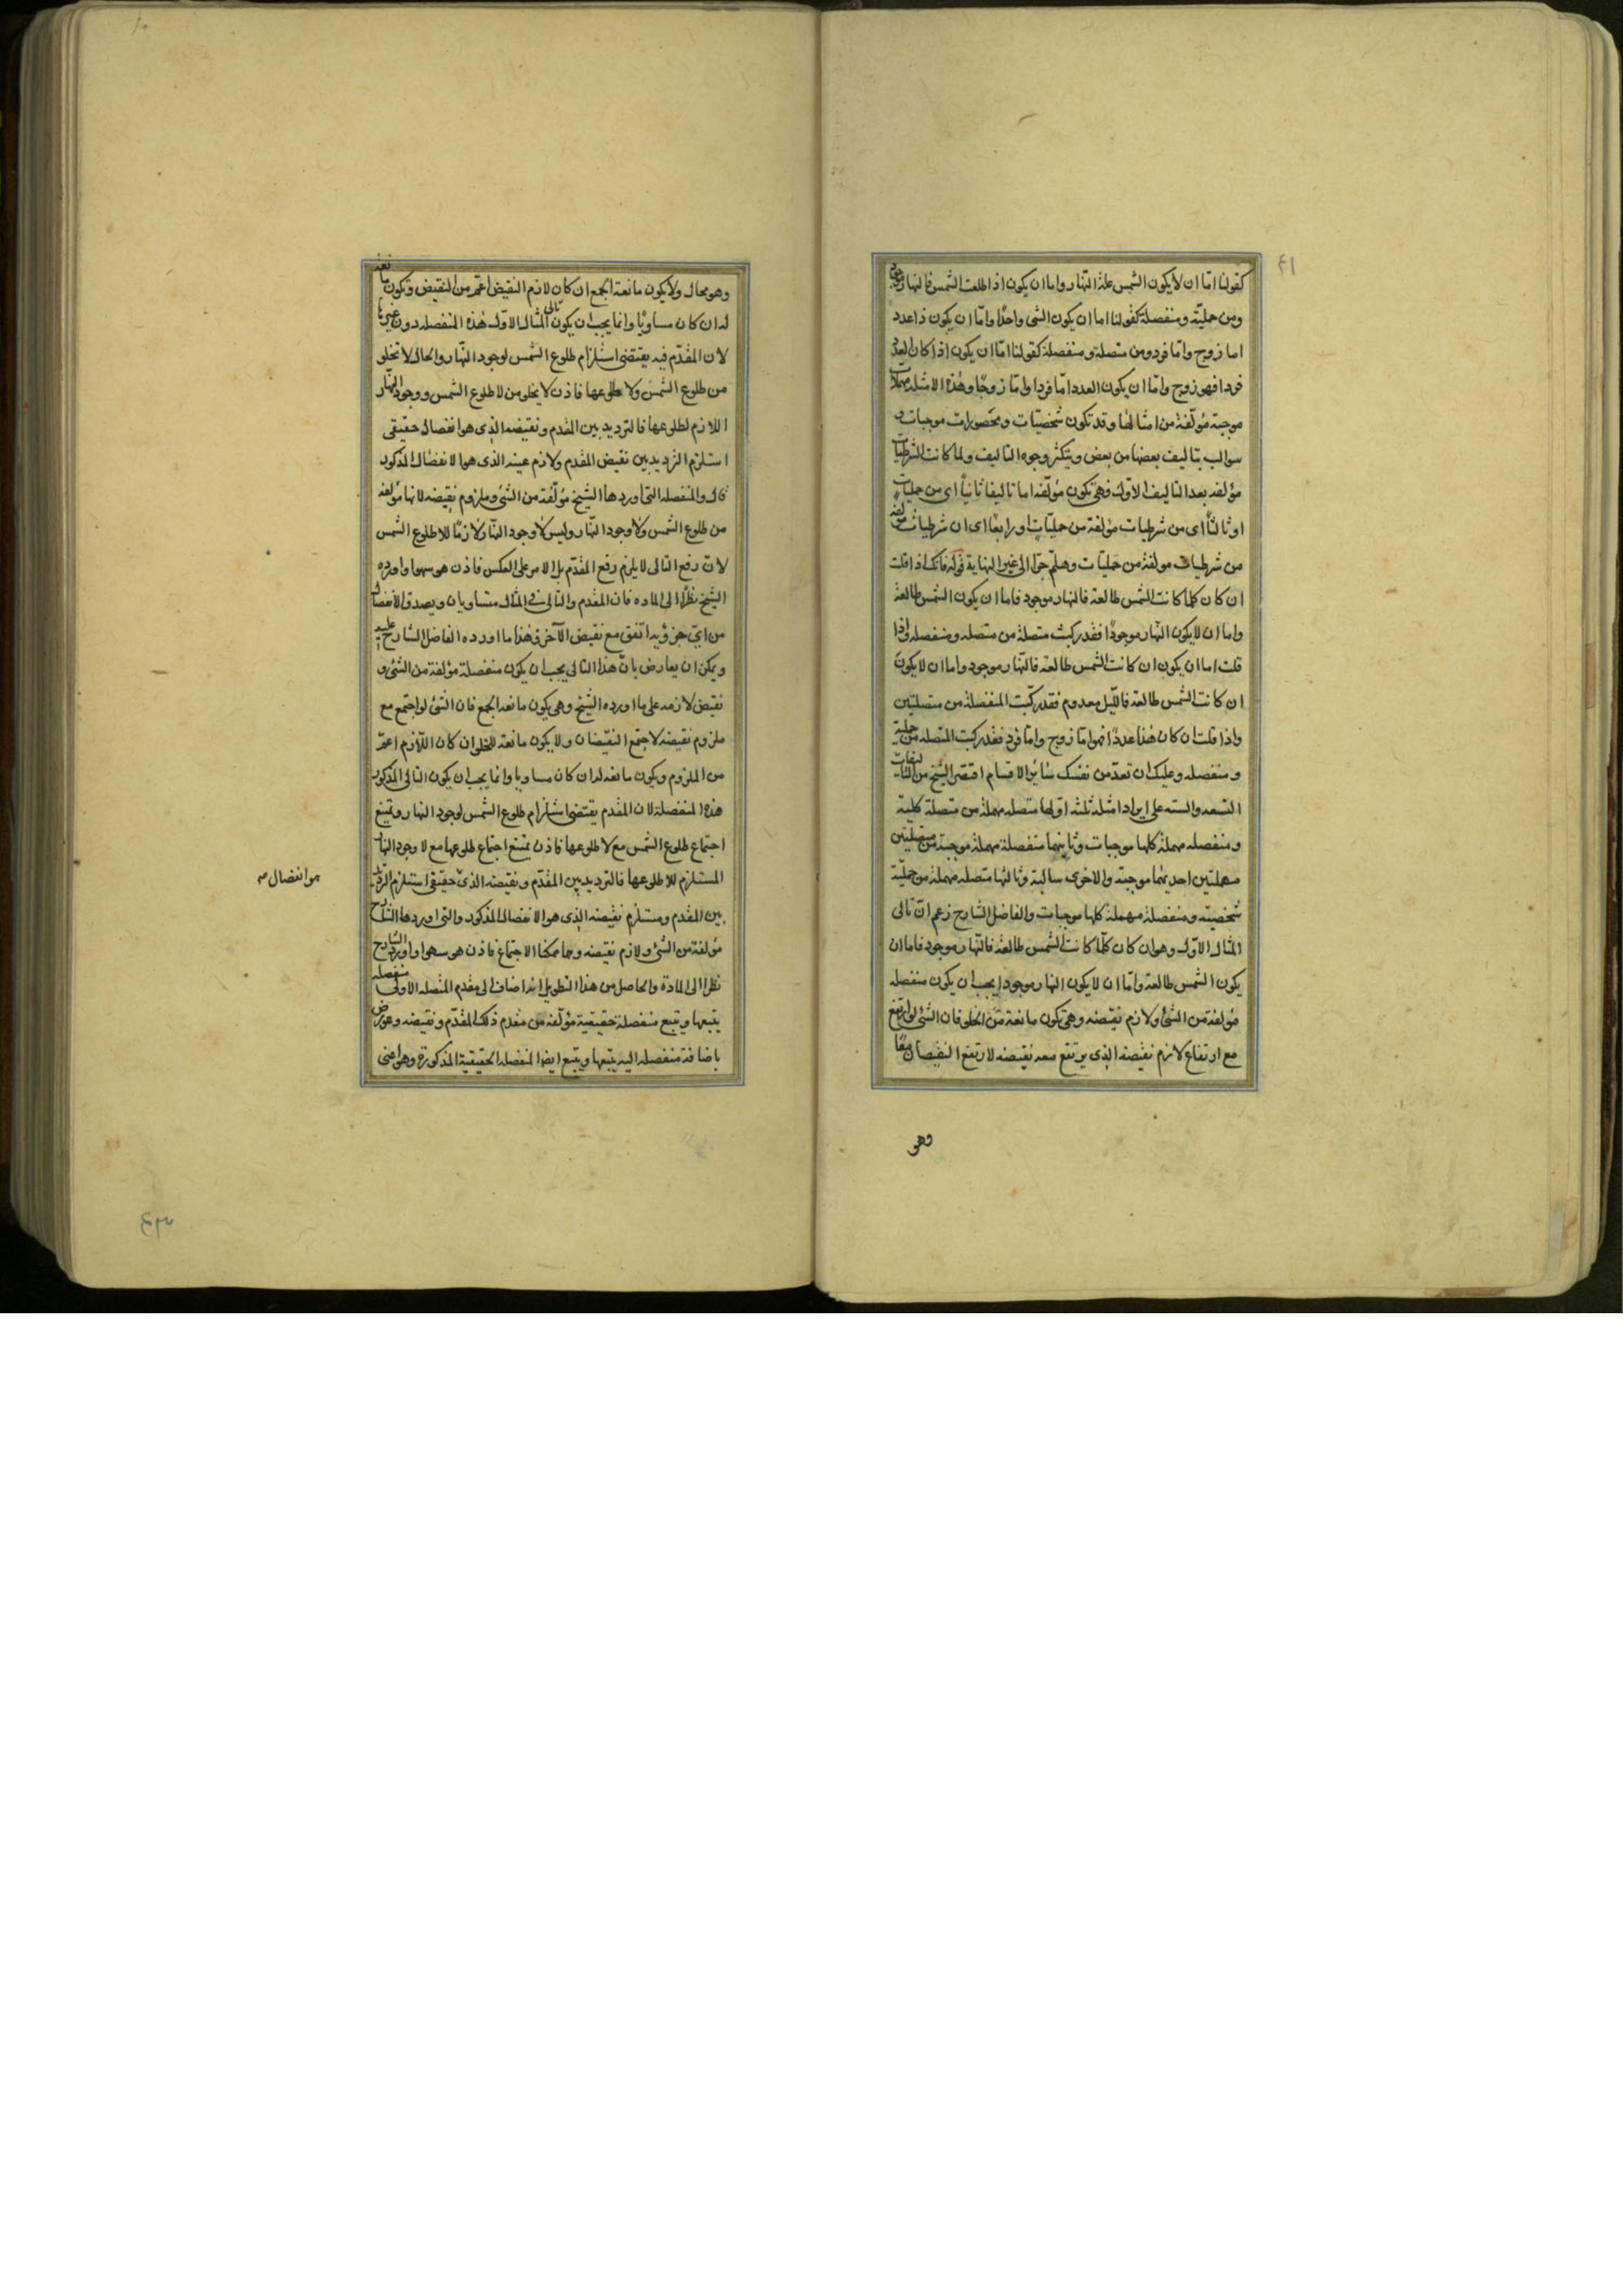 كقولنا اما ان لا يكون الشمس علة النهار واما ان يكون اذا طلعت الشمس فالنهار موجود
ومن حملية ومنفصلة كقولنا اما ان يكون الشئ واحدا واما ان يكون ذا عدد
اما زوج واما فرد ومن متصلة ومنفصلة كقولنا اما ان يكون اذا كان العدد
فردا فهو زوج واما ان يكون العدد اما فردا واما زوجا وهذه الامثلة مهملات
موجبة مؤلفة من امثالها وقد تكون شخصيات ومحصورات موجبات و
سوالب بتاليف بعضها من بعض ويتكثر وجوه التاليف ولما كانت الشرطيات
مؤلفة بعد التاليف الاول فهى تكون مؤلفة اما تاليفا ثانيا اى من حمليات
او ثالثا اى من شرطيات مؤلفة من حمليات او رابعا اى ان شرطيات مؤلفة
من شرطيات مولفة من حمليات وهلم جرا الى غير النهاية قوله فانك اذا قلت
ان كان كلما كانت الشمس طالعة فالنهار موجود فاما ان يكون الشمس طالعة
واما ان لا يكون النهار موجودا فقد ركبت متصلة من متصلة ومنفصلة واذا
قلت اما ان يكون ان كانت الشمس طالعة فالنهار موجود واما ان لا يكون
ان كانت الشمس طالعة فالليل معدوم فقد ركبت المنفصلة من متصلتين
واذا قلت ان كان هذا عددا فهو اما زوج واما فرد فقد ركبت المتصلة من حملية
ومنفصلة وعليك ان تعد من نفسك سائر الاقسام اقتصر الشيخ من التاليفات
التسعة والستة على ايراد امثلة ثلثة اولها متصلة مهملة من متصلة كلية
ومنفصلة مهملة كلها موجبات وثانيهما منفصلة مهملة موجبة من متصلتين
مهملتين احديهما موجبة والاخرى سالبة وثالثها متصلة مهملة من حملية
شخصية ومنفصلة مهملة كلها موجبات والفاضل الشارح زعم ان تالى
المثال الاول وهو ان كان كلما كانت الشمس طالعة فالنهار موجود فاما ان
يكون الشمس طالعة واما ان لا يكون النهار موجودا يجب ان يكون منفصلة
مؤلفة من الشئ ولازم نقيضه وهى تكون مانعة من الخلو فان الشئ لو ارتفع
مع ارتفاع لازم نقيضه الذى يرتفع معه نقيضه لارتفع النقيضان معا
وهو
وهو محال ولا يكون مانعة الجمع ان كان لازم النقيض اعم من النقيض وتكون مانعة
له ان كان مساويا وانما يجب ان يكون تالى المثال الاول هذه المنفصلة دون غيرها
لان المقدم فيه يقتضى استلزام طلوع الشمس لوجود النهار والحال لا تخلو
من طلوع الشمس ولا طلوعها فاذن لا يخلو من لا طلوع الشمس ووجود النهار
اللازم لطلوعها فالترديد بين المقدم ونقيضه الذى هو انفصال حقيقى
استلزم الترديد بين نقيض المقدم ولازم عينه الذى هو الانفصال المذكور
قال والمنفصلة التى اوردها الشيخ مؤلفة من الشئ وملزوم نقيضه لانها مؤلفة
من طلوع الشمس ولا وجود النهار وليس لا وجود النهار لازما للا طلوع الشمس
لان رفع التالى لا يلزم رفع المقدم بل الامر على العكس فاذن هو سهو او اورده
الشيخ نظرا الى المادة فان المقدم والتالى فى المثال متساويان ويصدق الانفصال
من اى جزؤيه اتفق مع نقيض الآخر فهذا ما اورده الفاضل الشارح عليه
ويمكن ان يعارض بان هذا التالى يجب ان يكون منفصلة مؤلفة من الشئ و
نقيض لازمه على ما اورده الشيخ وهى يكون مانعة الجمع فان الشئ لو اجتمع مع
ملزوم نقيضه لاجتمع النقيضان ولا يكون مانعة للخلو ان كان اللازم اعم
من الملزوم ويكون مانعة له ان كان مساويا وانما يجب ان يكون التالى المذكور
هذه المنفصلة لان المقدم يقتضى استلزام طلوع الشمس لوجود النهار ويمتنع
اجتماع طلوع الشمس مع لا طلوعها فاذن يمتنع اجتماع طلوعها مع لا وجود النهار
المستلزم للا طلوعها فالترديد بين المقدم ونقيضه الذى حقيقى استلزم الترديد
هو انفصال صح
بين المقدم ومستلزم نقيضه الذى هو الانفصال المذكور والتى اوردها الشارح
مؤلفة من الشئ ولازم نقيضه وهما ممكنا الاجتماع فاذن هو سهو او اورد الشارح
نظرا الى المادة والحاصل من هذا التطويل انه اضاف الى مقدم المتصلة الاولى منفصلة
يتبعها ويتبع منفصلة حقيقية مؤلفة من مقدم ذلك المقدم ونقيضه وعورض
باضافة منفصلة اليه يتبعها ويتبع ايضا المنفصلة الحقيقية المذكورة وهو اعنى